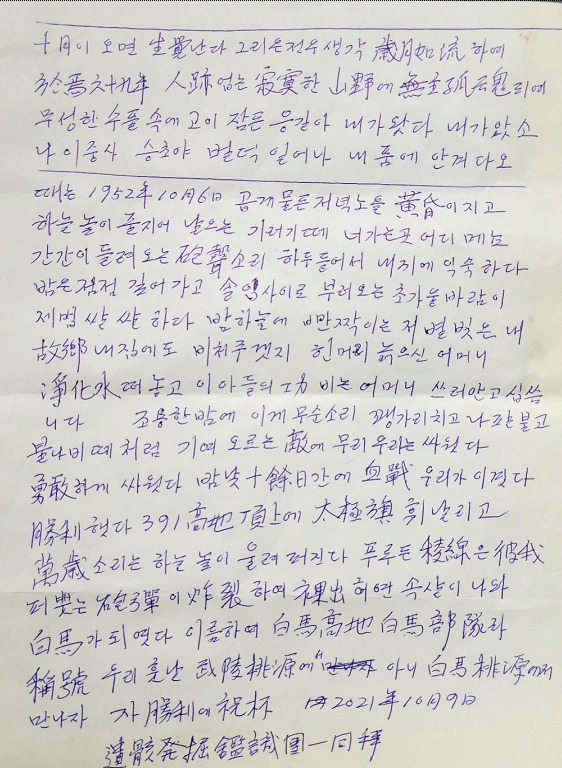 十月이 오면 生覺난다 그리은전우생각 歲月如流 하여
於焉六十九年 人跡업는 寂寞한 山野에 無主孤魂되여
무성한 수풀 속에 고이 잠든 응길아 내가왓다 내가왔소
나 이중사 승초야 벌덕 일어나 내 품에 안겨다오
때는 1952年 10月6日 곱게물든저녁노을 黃昏이지고
하늘 높이 줄지어 날으는 기러기떼 너가는곳어디메뇨
간간이 들려오는 砲聲소리 하두들어서 내귀에 익숙하다
밤은점점 깊어가고 솔입사이로 부러오는 초가을바람이
제법 쌀쌀하다 밤하늘에 반짝이는 저별빗은 내
故鄕내집에도 비처주겟지 힌머리 늙으신 어머니
淨化水떠놓고 이아들의 功 비는어머니 쓰러안고십씀
니다 조용한밤에 이게무슨소리 꽹가리치고 나팔불고
불나비떼처럼 기여오르는 敵에무리 우리는싸웠다
勇敢하게 싸웠다 밤낮十餘日간에 血戰 우리가이겼다
勝利했다 391高地頂上에 太極旗 휘날리고
萬歲소리는 하늘높이 울려퍼진다 푸루든稜線은 彼我
퍼붓는 砲彈이 炸裂하여 裸出허연 속살이 나와
白馬가되엿다 이름하여 白馬高地 白馬部隊라
稱號 우리훗날 武陵桃源에 아니 白馬桃源에서
만나자 자 勝利에祝杯 2021年10月9日
遺骸発掘鑑識團一同拜